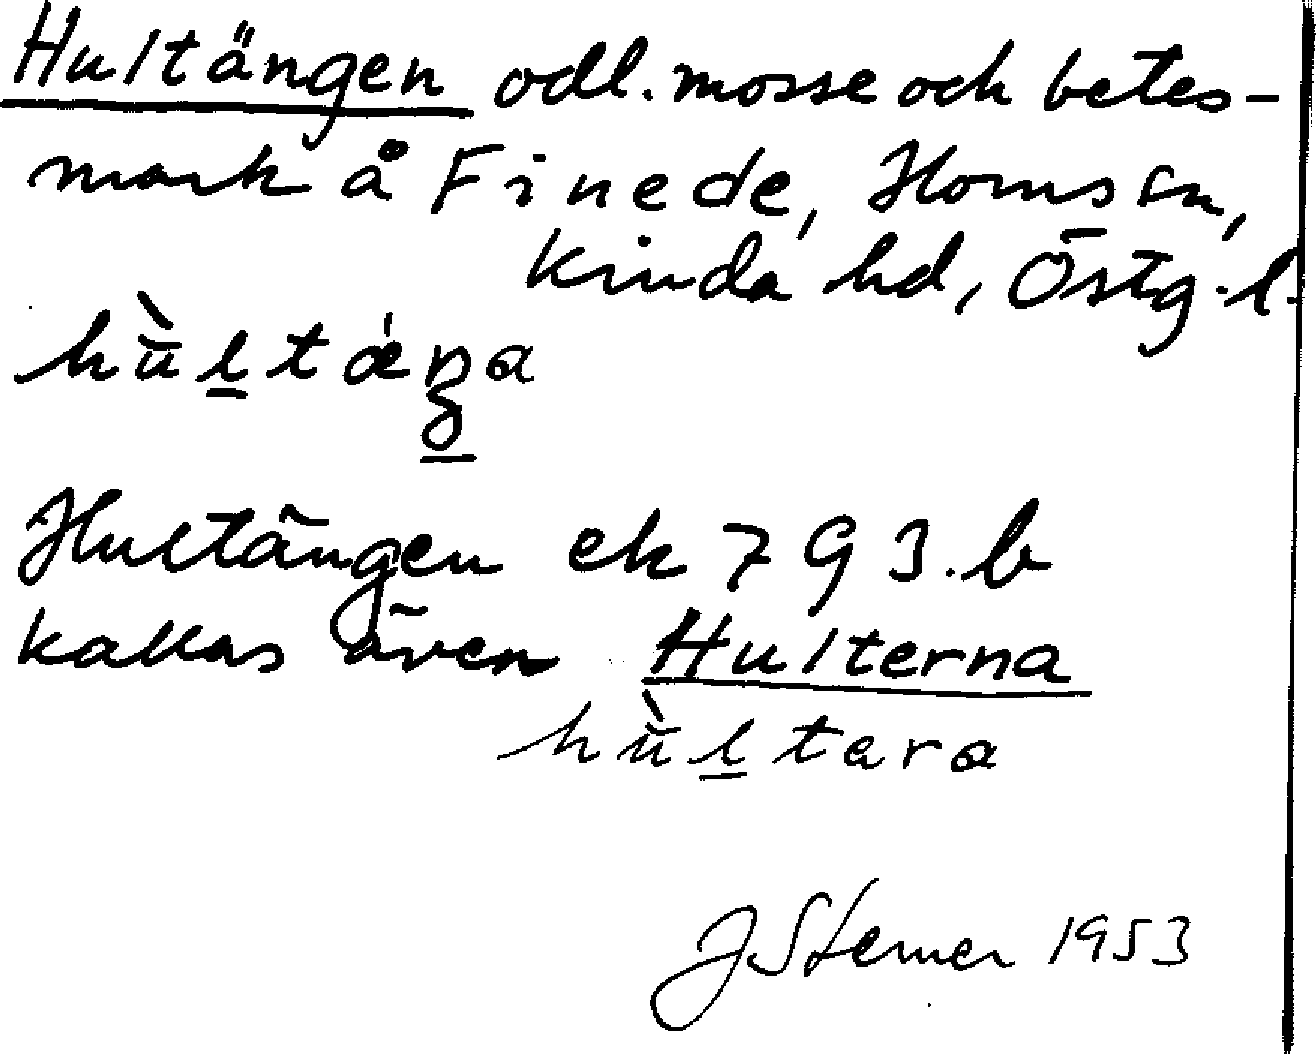 Hultängen odl. mosse och betes-
mark å Finede, Horns sn,
Kinda hd, Östg. l.
hù̈ltäŋa
Hultängen ek 7 G 3.b
kallas även Hulterna
hù̈ltara
J Sterner 1953